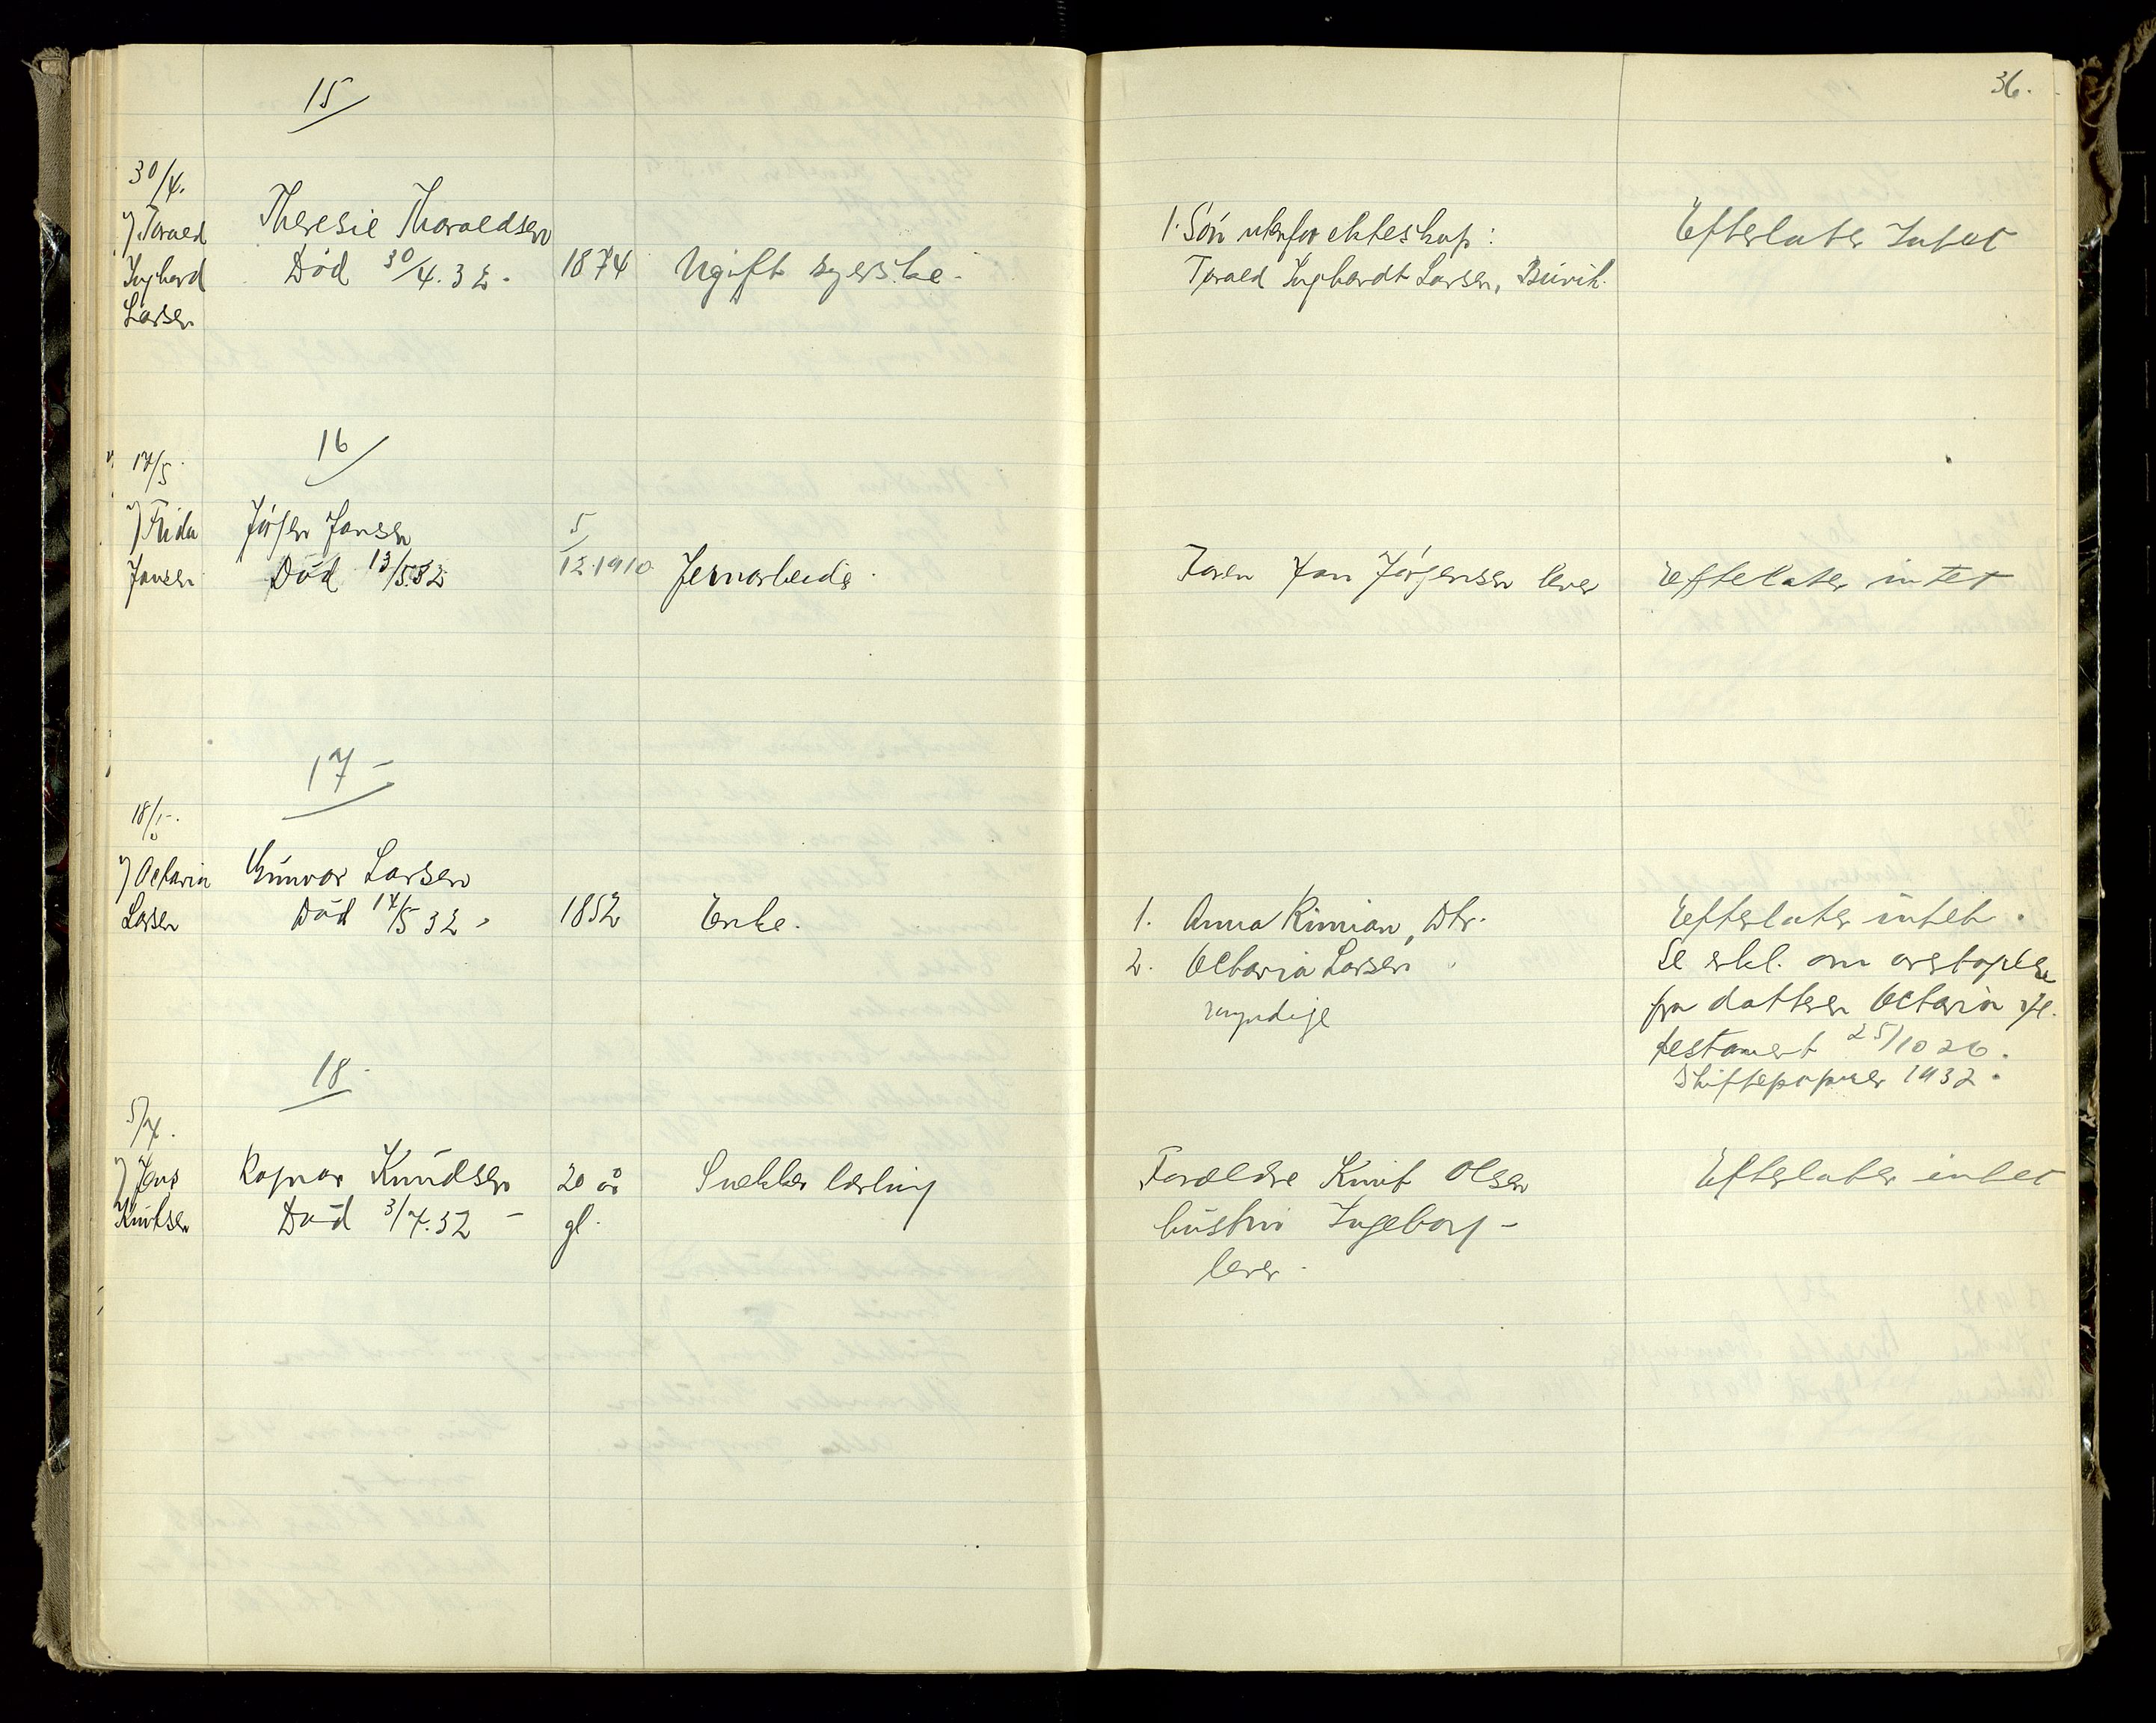 36.
15
30/4.
v/ Torald
Inghard
Larsen
Theresie Tharaldsen
Død 30/4.32.
1874
Ugift syerske.
1. Søn utenfor ekteskap:
Torald Inghardt Larsen,
Efterlater Intet
16
14/5
v/ Frida
Jansen
Jørgen Jansen
Død 13/5.32
5/12.1910
Jernarbeider.
Faren Jan Jørgensen lever
Efterlater intet
17
18/5.
v/ Octavia
Larsen
Gunvor Larsen
Død 14/5 32
1852
Enke.
1. Anna, Dtr.
2. Octavia Larsen "
myndige
Efterlater intet.
Se erkl. om overtagelse
fra datteren Octavia ifl.
testament 25/10 26.
Skiftepapirer 1932.
18
5/7.
v/ Jens
Knutsen
Ragnar Knudsen
Død 3/7.32
20 år
gl.
Snekker lærling
Forældre Knut Olsen
hustru Ingeborg
lever.
Efterlater intet